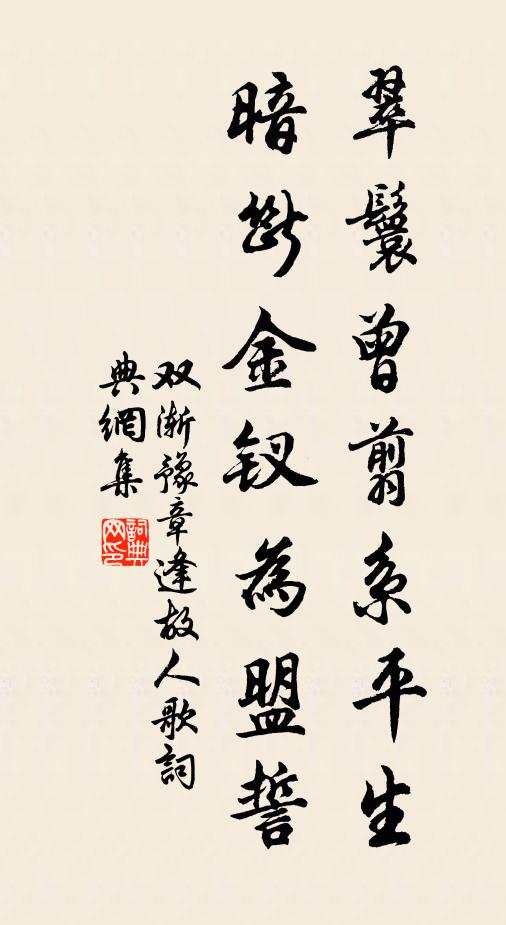 翠鬟曾翦系平生
暗断金钗為盟誓
双渐豫章逢故人歌詞
典網集
詞典网印